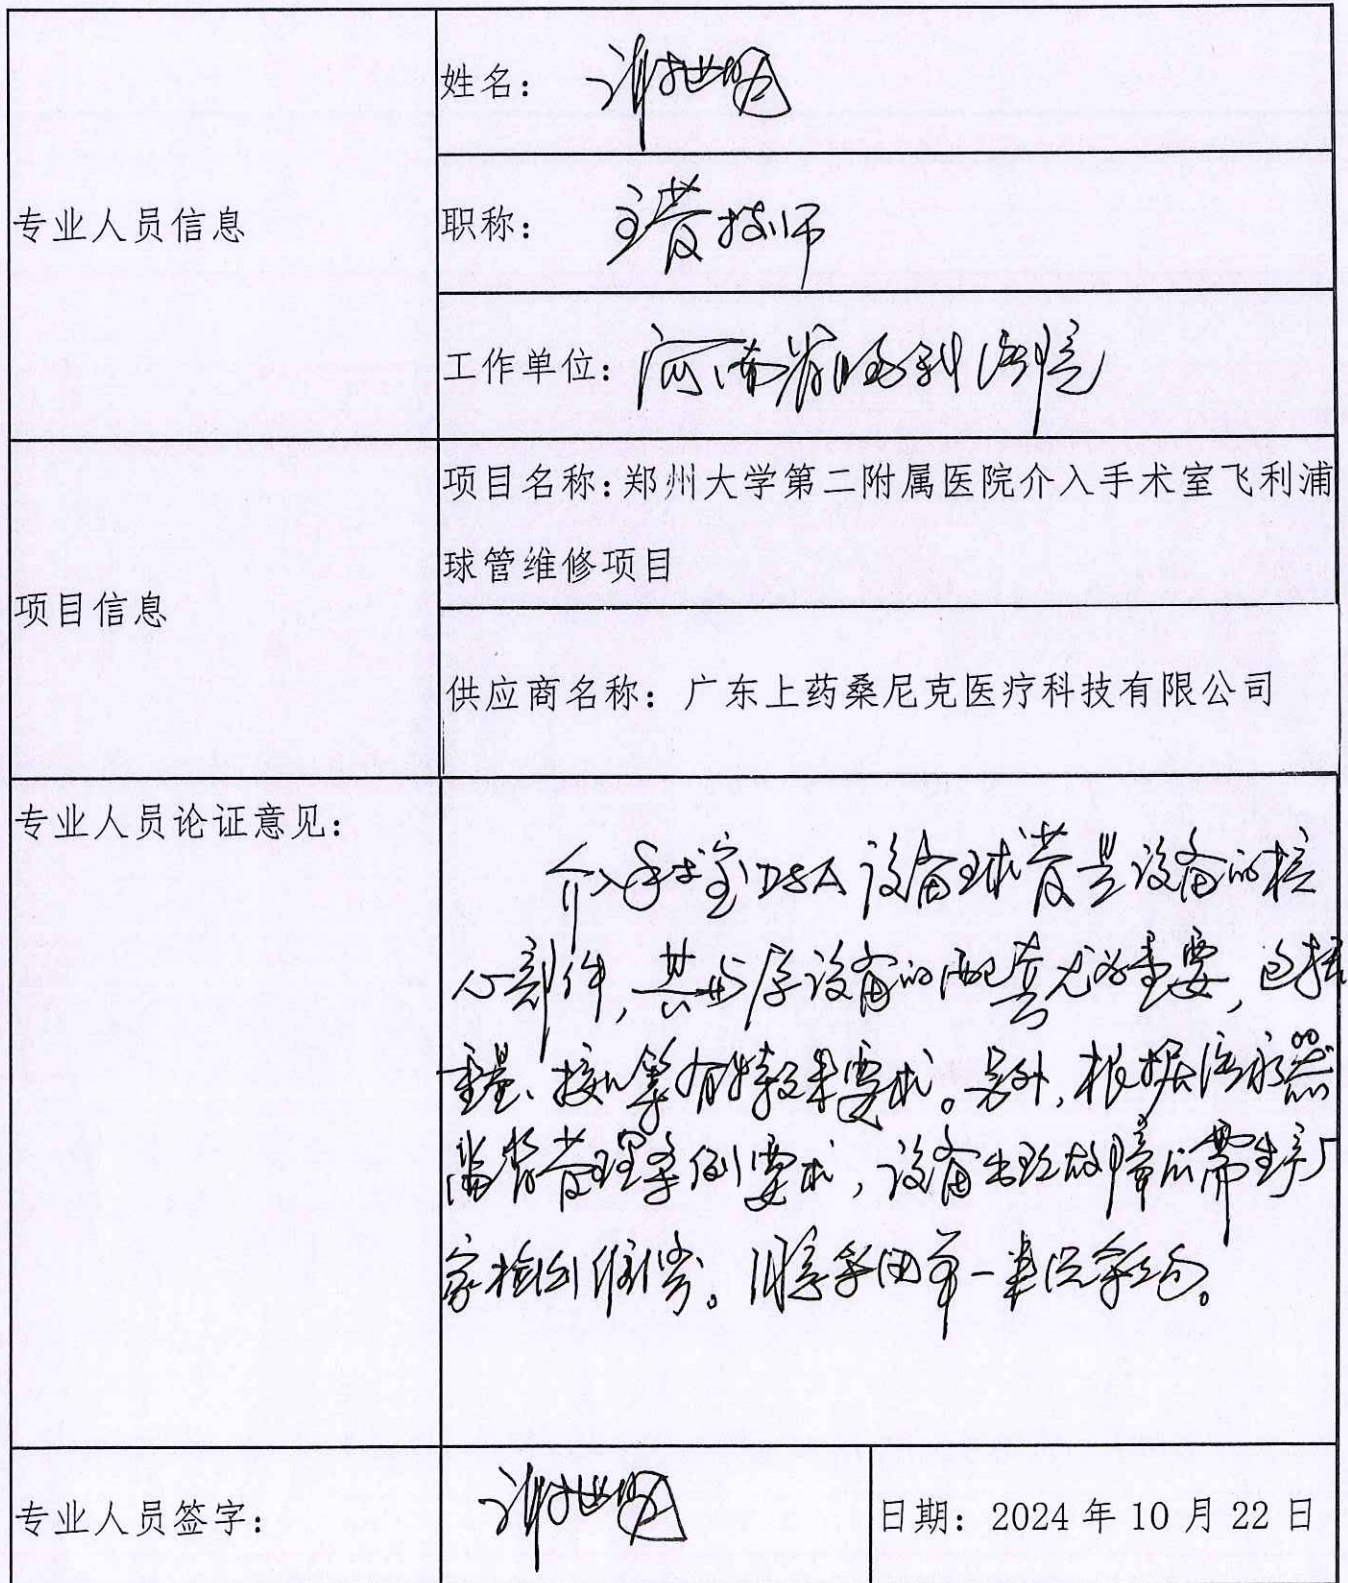 专业人员信息
姓名：谢世明
职称：主管技师
工作单位：河南省胸科医院
项目信息
项目名称：郑州大学第二附属医院介入手术室飞利浦
球管维修项目
供应商名称：广东上药桑尼克医疗科技有限公司
专业人员论证意见：
介入手术室DSA设备球管是设备的核
心部件，其与原设备的配套尤为重要，包括
重量、接口等有特殊要求。另外，根据医疗器
监督管理条例要求，设备出现故障后需生产厂
家检测维修。同意采用单一来源采购。
专业人员签字：
谢世明
日期：2024年10月22日